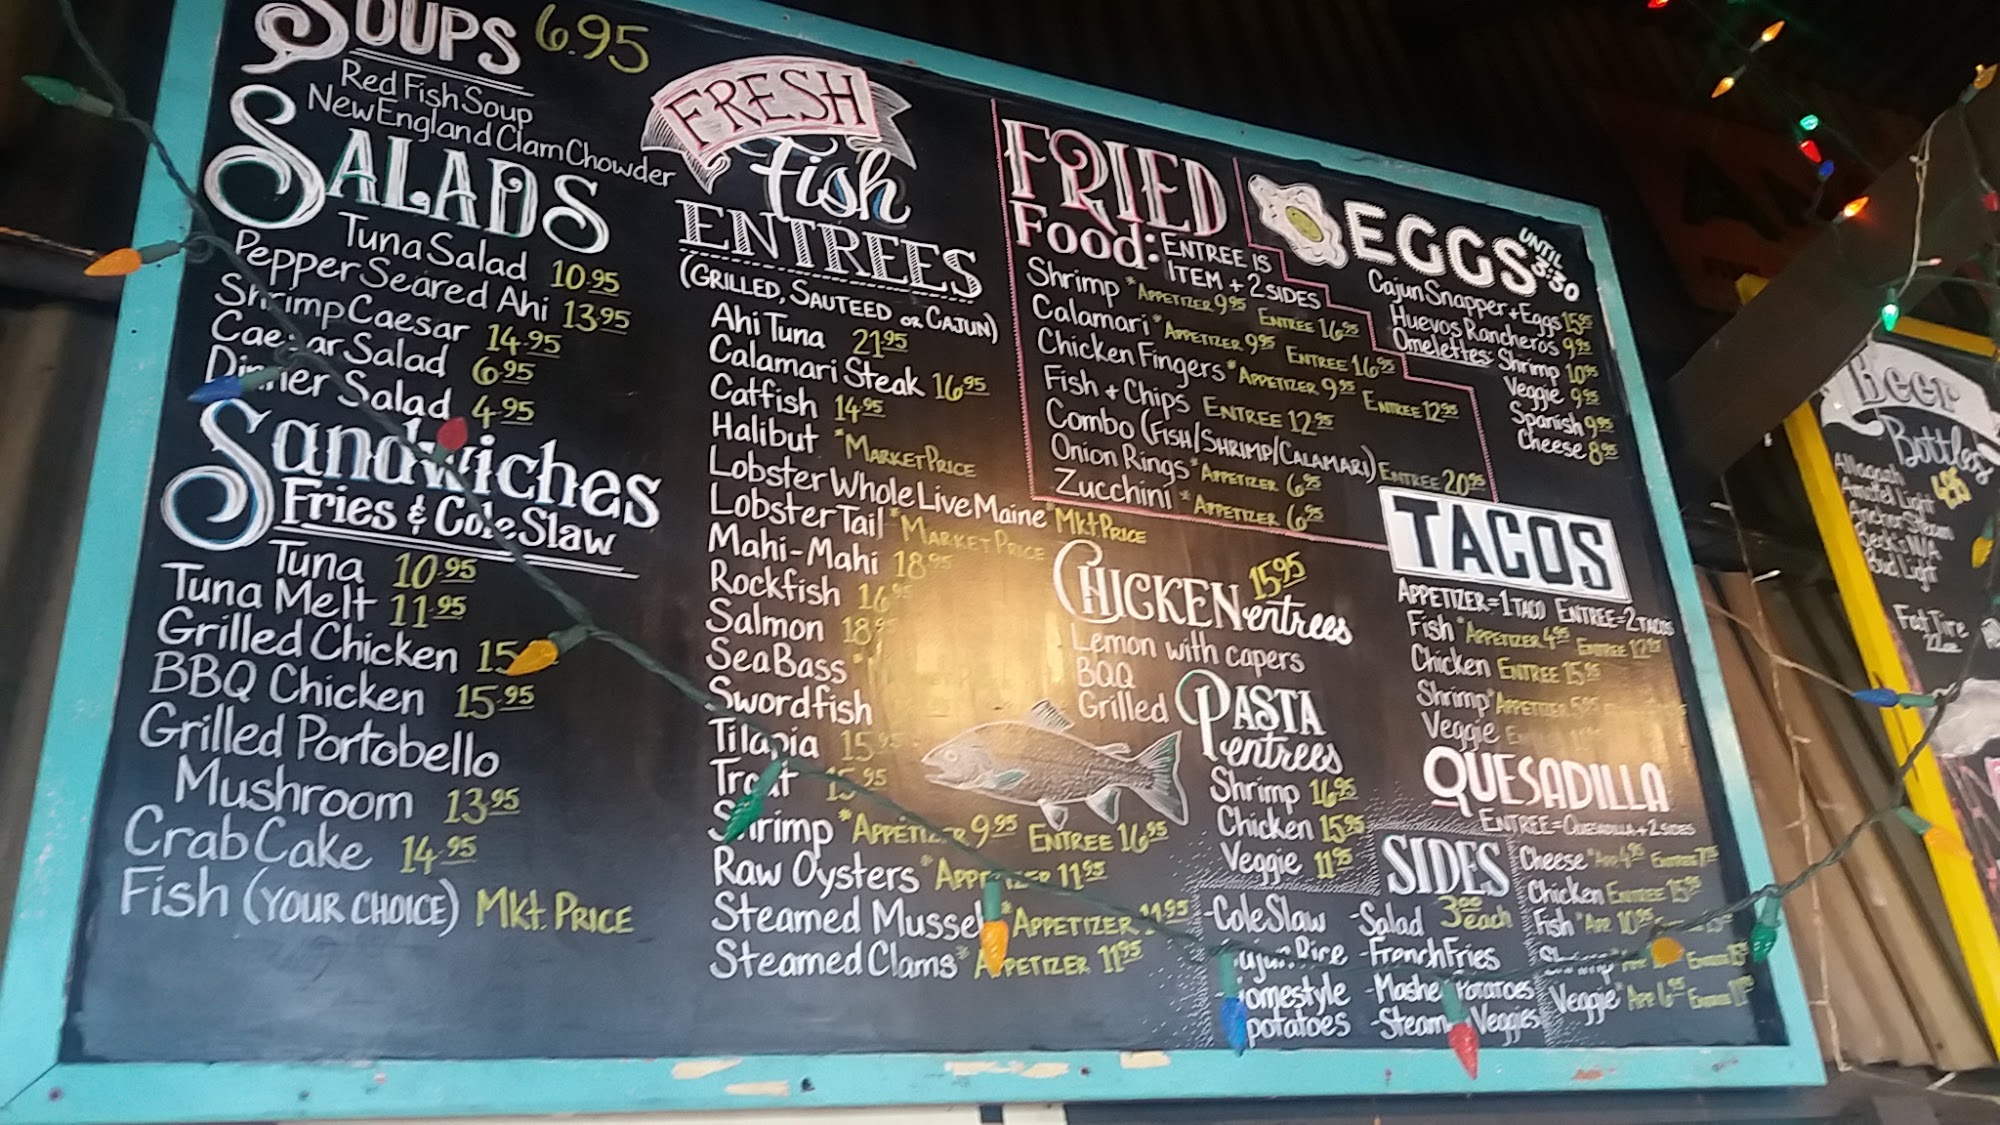 SOUPS 6.95
Red Fish Soup
New England Clam Chowder
SALADS
Tuna Salad 10.95
Pepper Seared Ahi 13.95
Shrimp Caesar 14.95
Caesar Salad 6.95
Dinner Salad 4.95
Sandwiches
Fries & Cole Slaw
Tuna 10.95
Tuna Melt 11.95
Grilled Chicken 15
BBQ Chicken 15.95
Grilled Portobello
Mushroom 13.95
Crab Cake 14.95
Fish (YOUR CHOICE) Mkt. PRICE
FRESH
Fish
ENTREES
(GRILLED, SAUTEED OR CAJUN)
Ahi Tuna 21.95
Calamari Steak 16.95
Catfish 14.95
Halibut *MARKET PRICE
Lobster Whole Live Maine *Mkt PRICE
Lobster Tail *MARKET PRICE
Mahi-Mahi 18.95
Rockfish 16.95
Salmon 18.95
Sea Bass
Swordfish
Tilapia 15.95
Trout 15.95
Shrimp *APPETIZER 9.95 ENTREE 16.95
Raw Oysters *APPETIZER 11.95
Steamed Mussels *APPETIZER 14.95
Steamed Clams *APPETIZER 11.95
FRIED
Food: ENTREE IS
ITEM + 2 SIDES
Shrimp *APPETIZER 9.95 ENTREE 16.95
Calamari *APPETIZER 9.95 ENTREE 16.95
Chicken Fingers *APPETIZER 9.95 ENTREE 12.95
Fish + Chips ENTREE 12.95
Combo (FISH/SHRIMP/CALAMARI) ENTREE 20.95
Onion Rings *APPETIZER 6.95
Zucchini *APPETIZER 6.95
EGGS UNTIL 3:30
Cajun Snapper + Eggs 15.95
Huevos Rancheros 9.95
Omelettes: Shrimp 10.95
Veggie 9.95
Spanish 9.95
Cheese 8.95
CHICKEN entrees 15.95
Lemon with capers
BQQ
Grilled
PASTA
entrees
Shrimp 16.95
Chicken 15.95
Veggie 11.95
TACOS
APPETIZER=1 TACO ENTREE=2 TACOS
Fish *APPETIZER 4.95 ENTREE 12.95
Chicken ENTREE 15.95
Shrimp *APPETIZER 5.95
Veggie
QUESADILLA
ENTREE=QUESADILLA + 2 SIDES
Cheese *APP 4.95 ENTREE 7.95
Chicken ENTREE 15.95
Fish *APP 10.95
Shrimp
Veggie *APP 6.95
SIDES
3.00 each
-Cole Slaw
Cajun Rice
Homestyle
potatoes
-Salad
-French Fries
-Mashed Potatoes
-Steamed Veggies
Beer
Bottles
4.95
Amstel Light
Anchor Steam
Beck's N/A
Bud Light
Fat Tire
22oz